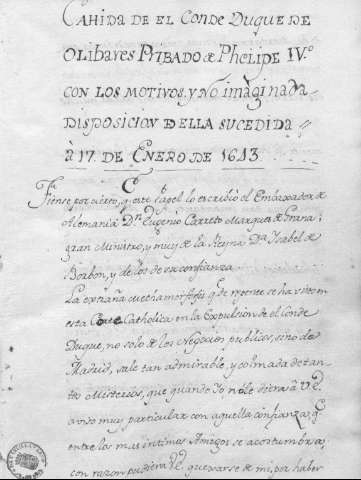 CAHIDA DE EL CONDE DUQUE DE
OLIBARES PRIBADO de PHELIPE IV.º
CON LOS MOTIVOS, y No imaginada
DISPOSICION DELLA SUCEDIDA
à 17. DE ENERO DE 1643.
Tiense por cierto, q̃ este papel lo escribiò el Embaxador de
Alemania Dn. Eugenio Carreto Marques de Grana;
gran Ministro, y muy de la Reyna Dª. Isabel de
Borbon, y de los de su confianza.
La extraña Methamorfosis que de repente se ha visto en
esta Corte Catholica en la Expulsion de el Conde
Duque, no solo de los Negocios publicos, sino de
Madrid, sale tan admirable, y colmada de tan-
tos Misterios, que quando Yo no le diera à V.E.
aviso muy particular con aquella confianza, q̃
entre los mas intimos Amigos se acostumbra;
con razon pudiera V.E. quexarse de mi, por haber